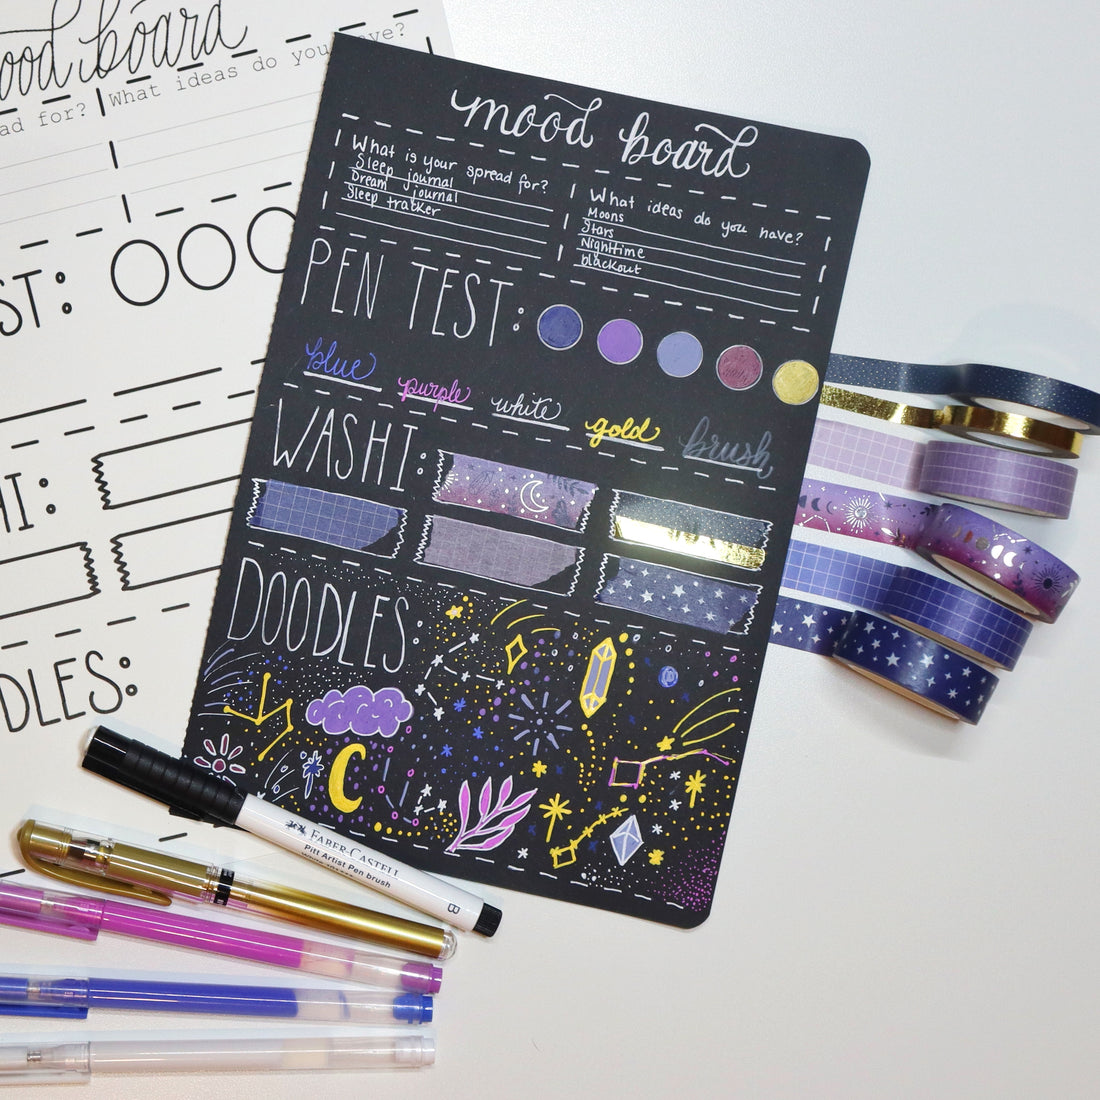 ood board
ad for?
What ideas do you have?
ST:
HI:
DLES:
mood board
What is your spread for?
Sleep journal
Dream journal
Sleep tracker
What ideas do you have?
Moons
Stars
Nighttime
blackout
PEN TEST:
blue
purple
white
gold
brush
WASHI:
DOODLES:
FABER-CASTELL
Pitt Artist Pen brush
B